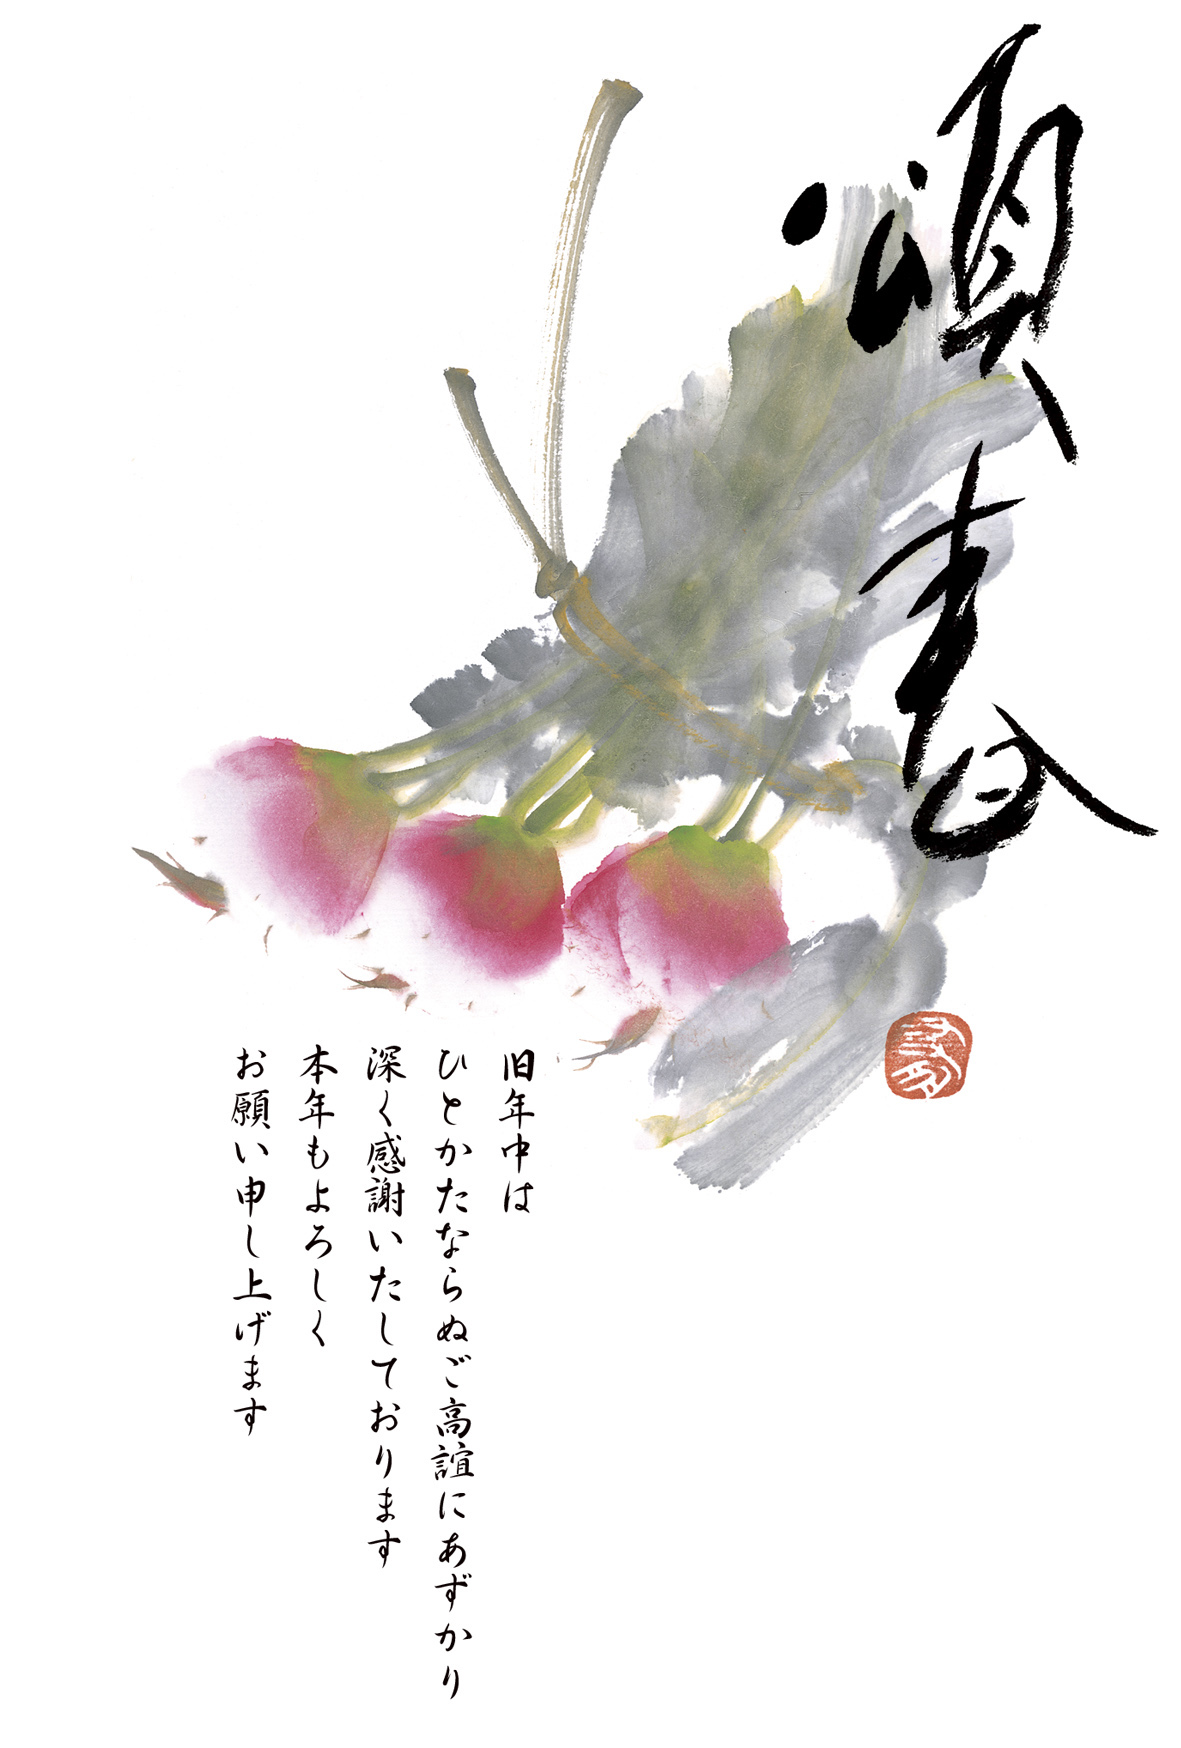 頌春
旧年中は
ひとかたならぬご高誼にあずかり
深く感謝いたしております
本年もよろしく
お願い申し上げます